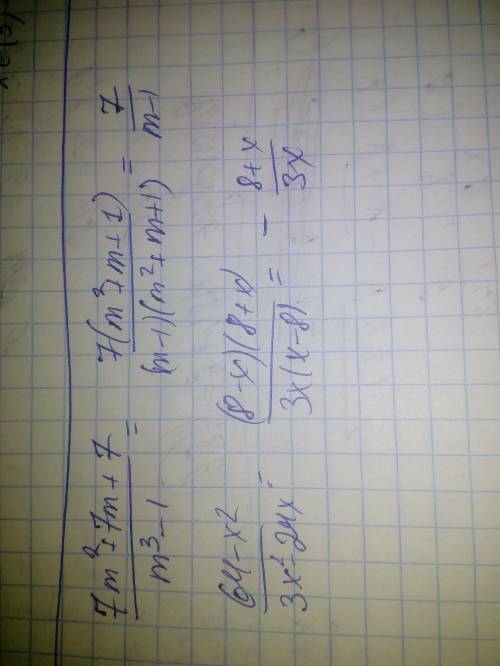 (7m²+7m+7)/(m³-1) = 7(m³+m+1)/((m-1)(m²+m+1)) = 7/(m-1)
(64-x²)/(3x²-24x) = (8-x)(8+x)/(3x(x-8)) = - (8+x)/(3x)